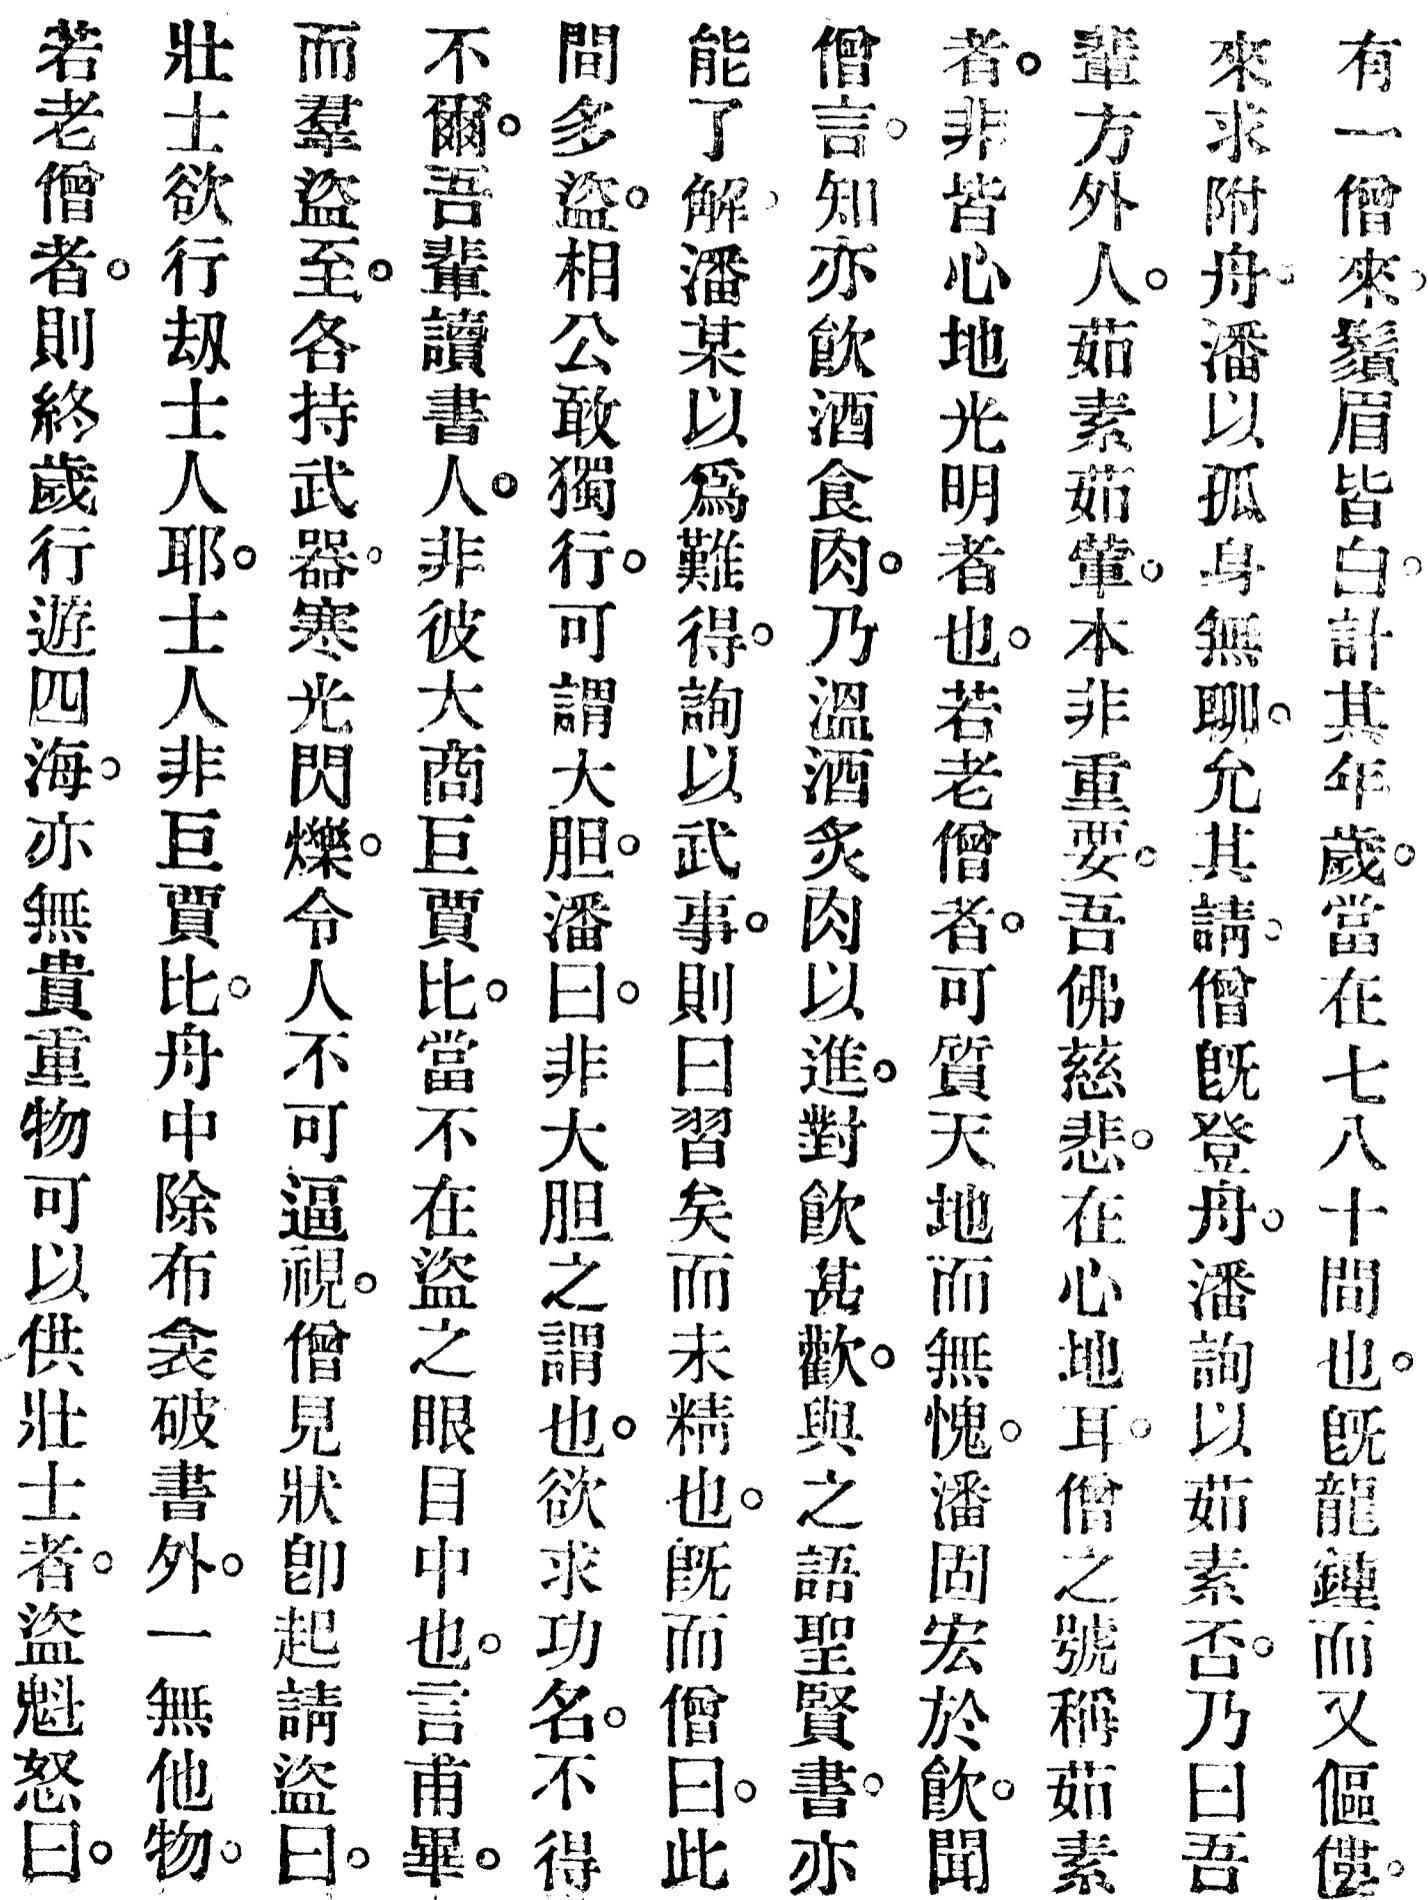 有一僧來。鬚眉皆白。計其年歲。當在七八十間也。既龍鍾而又傴僂。
來求附舟。潘以孤身無聊。允其請。僧既登舟。潘詢以茹素否。乃曰吾
輩方外人。茹素茹葷。本非重要。吾佛慈悲。在心地耳。僧之號稱茹素
者。非皆心地光明者也。若老僧者。可質天地而無愧。潘固宏於飲。聞
僧言。知亦飲酒食肉。乃溫酒炙肉以進。對飲甚歡。與之語聖賢書。亦
能了解。潘某以爲難得。詢以武事。則曰習矣而未精也。既而僧曰。此
間多盜。相公敢獨行。可謂大胆。潘曰。非大胆之謂也。欲求功名。不得
不爾。吾輩讀書人。非彼大商巨賈比。當不在盜之眼目中也。言甫畢。
而羣盜至。各持武器。寒光閃爍。令人不可逼視。僧見狀卽起請盜曰。
壯士欲行刼士人耶。士人非巨賈比。舟中除布衾破書外。一無他物。
若老僧者。則終歲行遊四海。亦無貴重物可以供壯士者。盜魁怒曰。